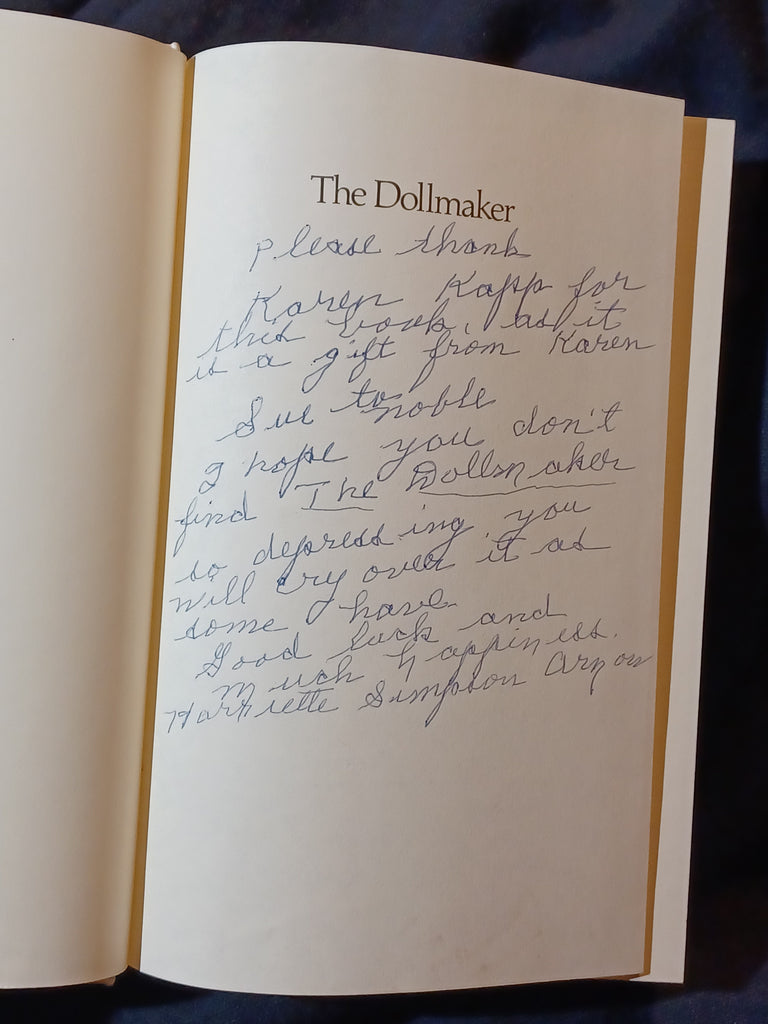 The Dollmaker
please thank
Karen Kapp for
this book, as it
is a gift from Karen
Sue to noble
I hope you don't
find The Dollmaker
so depressing you
will cry over it as
some have.
Good luck and
much happiness.
Harriette Simpson Arnow